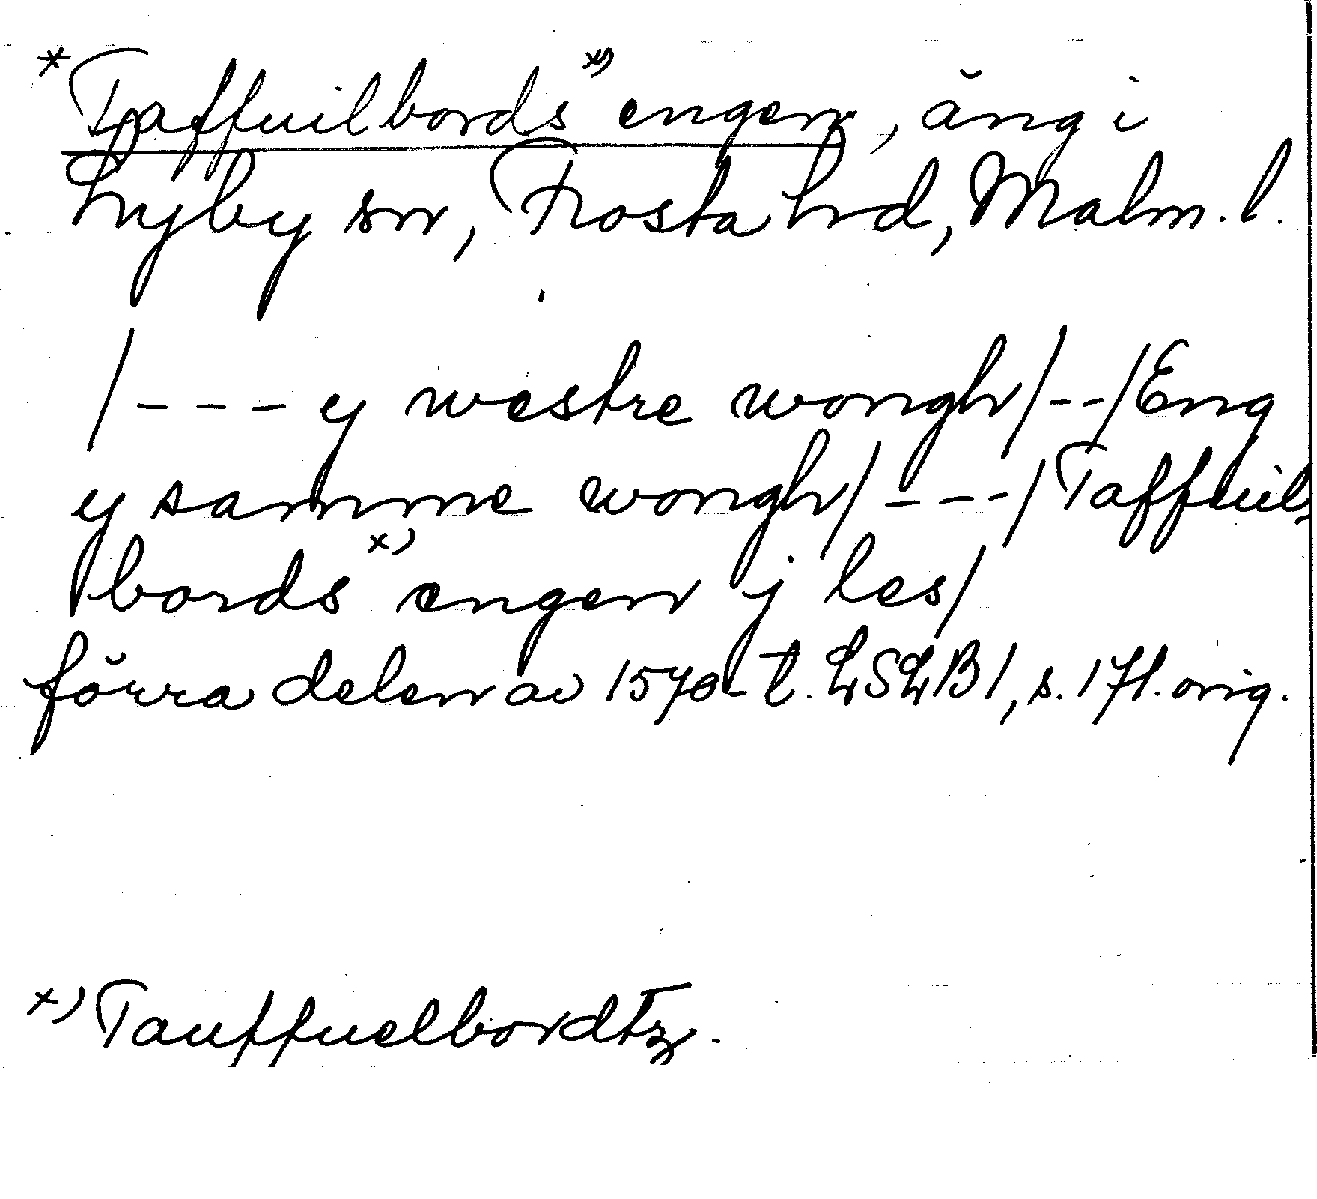 * Taffuilbords x) engen, äng i
Lyby sn, Frosta hd, Malm. l.
/--- y westre wongh/--/Eng
y samme wongh/---/Taffuil,
bords x) engen j les/
förra delen av 1570-t. LSLB1, s. 171. orig.
x) Tauffuelbordtz.